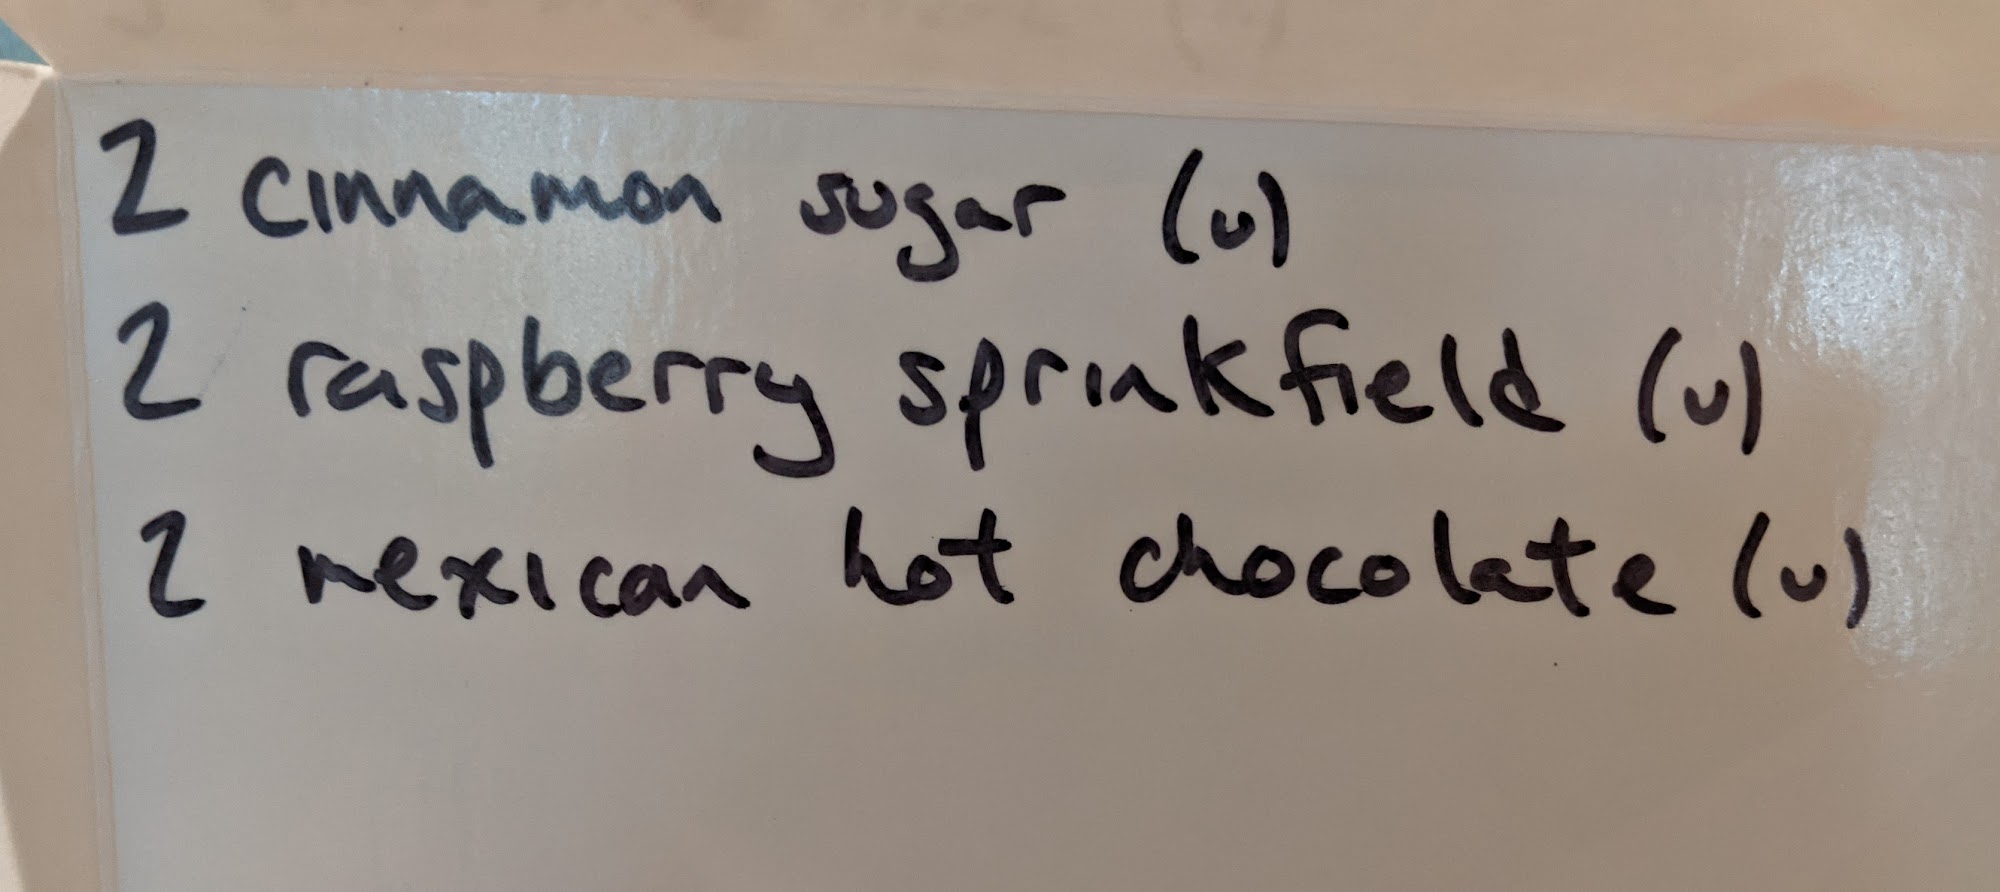 2 cinnamon sugar (v)
2 raspberry sprinkfield (v)
2 mexican hot chocolate (v)